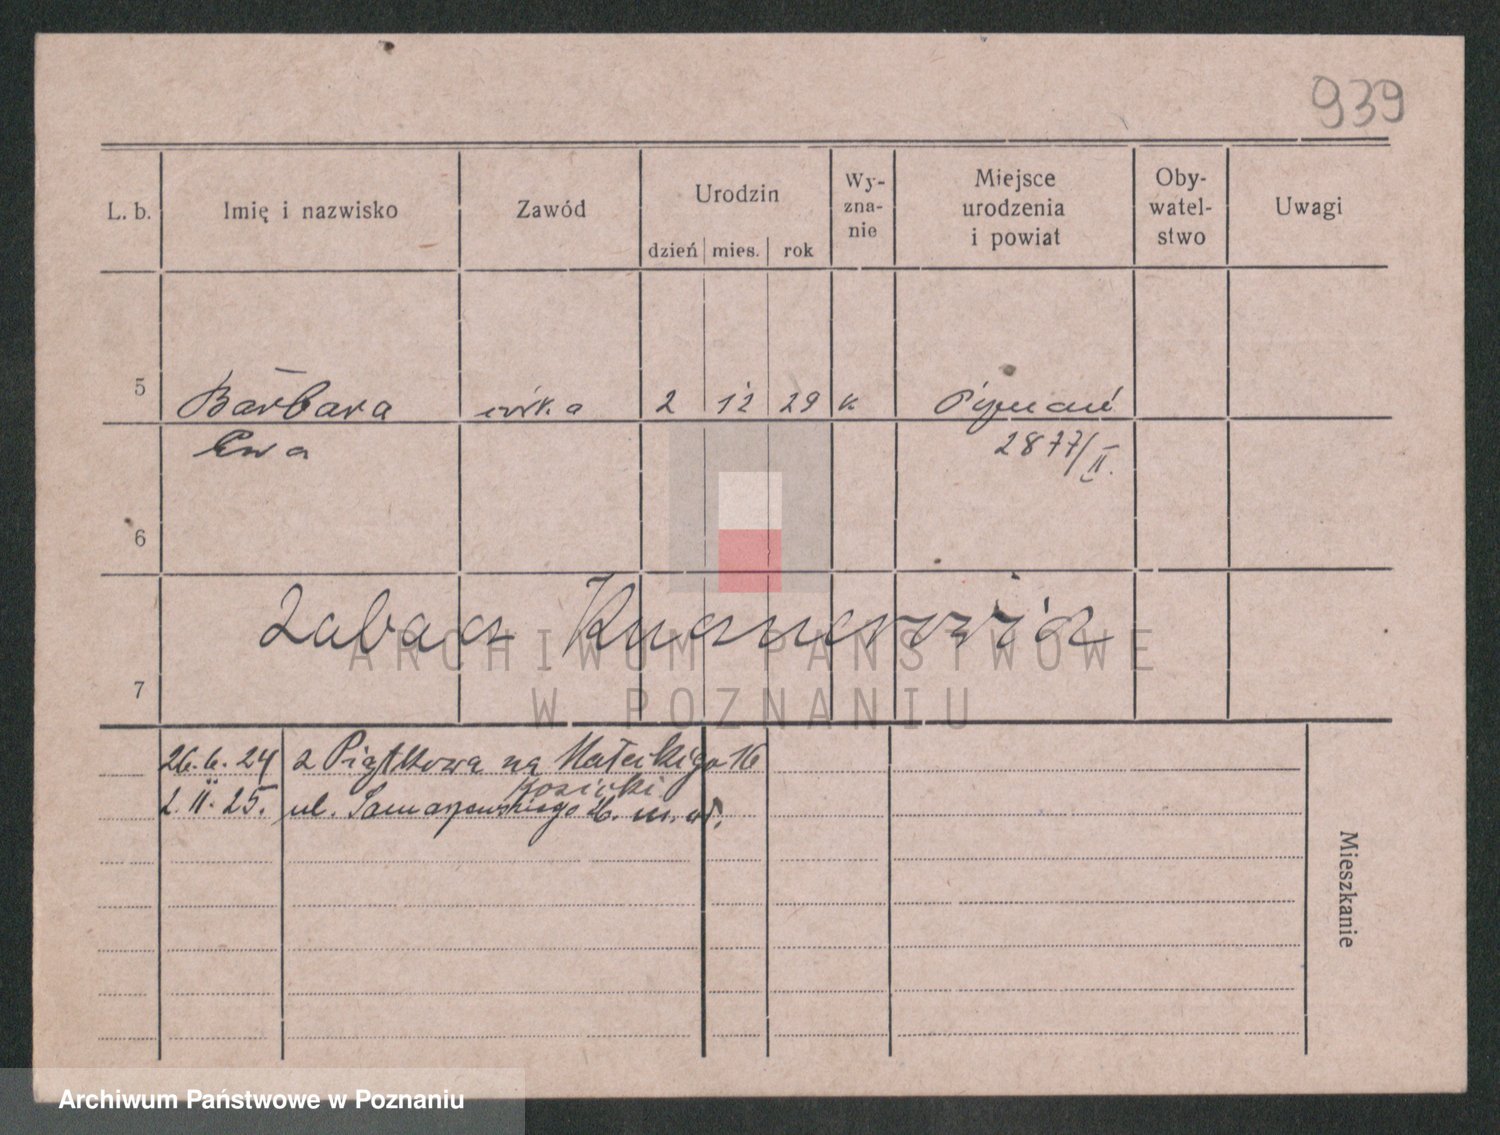 939
L. b. Imię i nazwisko Zawód Urodzin dzień mies. rok Wy-zna-nie Miejsce urodzenia i powiat Oby-watel-stwo Uwagi
5 Barbara córka 2 12 29 k Poznań
Ewa 2877/II.
6
7
ARCHIWUM PAŃSTWOWE
W POZNANIU
26.6.24 z Piątkowa na Małeckiego 16
Kosicki
2.II.25. ul. Samarzewskiego 26.
Mieszkanie
Archiwum Państwowe w Poznaniu